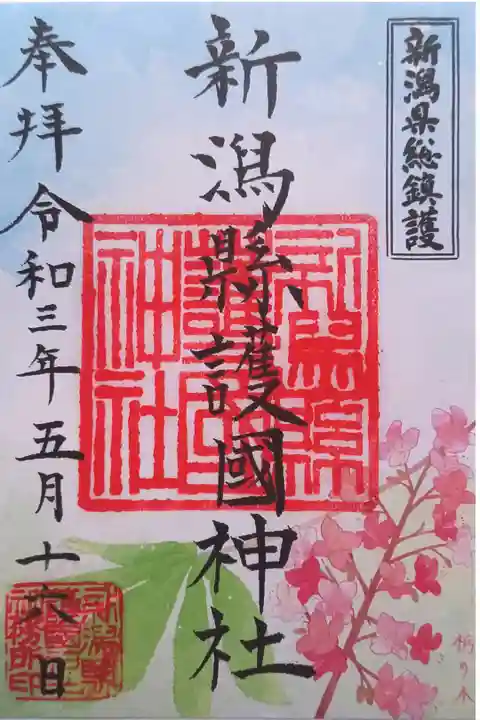 新潟県総鎮護
新潟縣護國神社
奉拝 令和三年五月十六日
新潟縣護國神社
新潟縣護國神社社務所印
栃の木